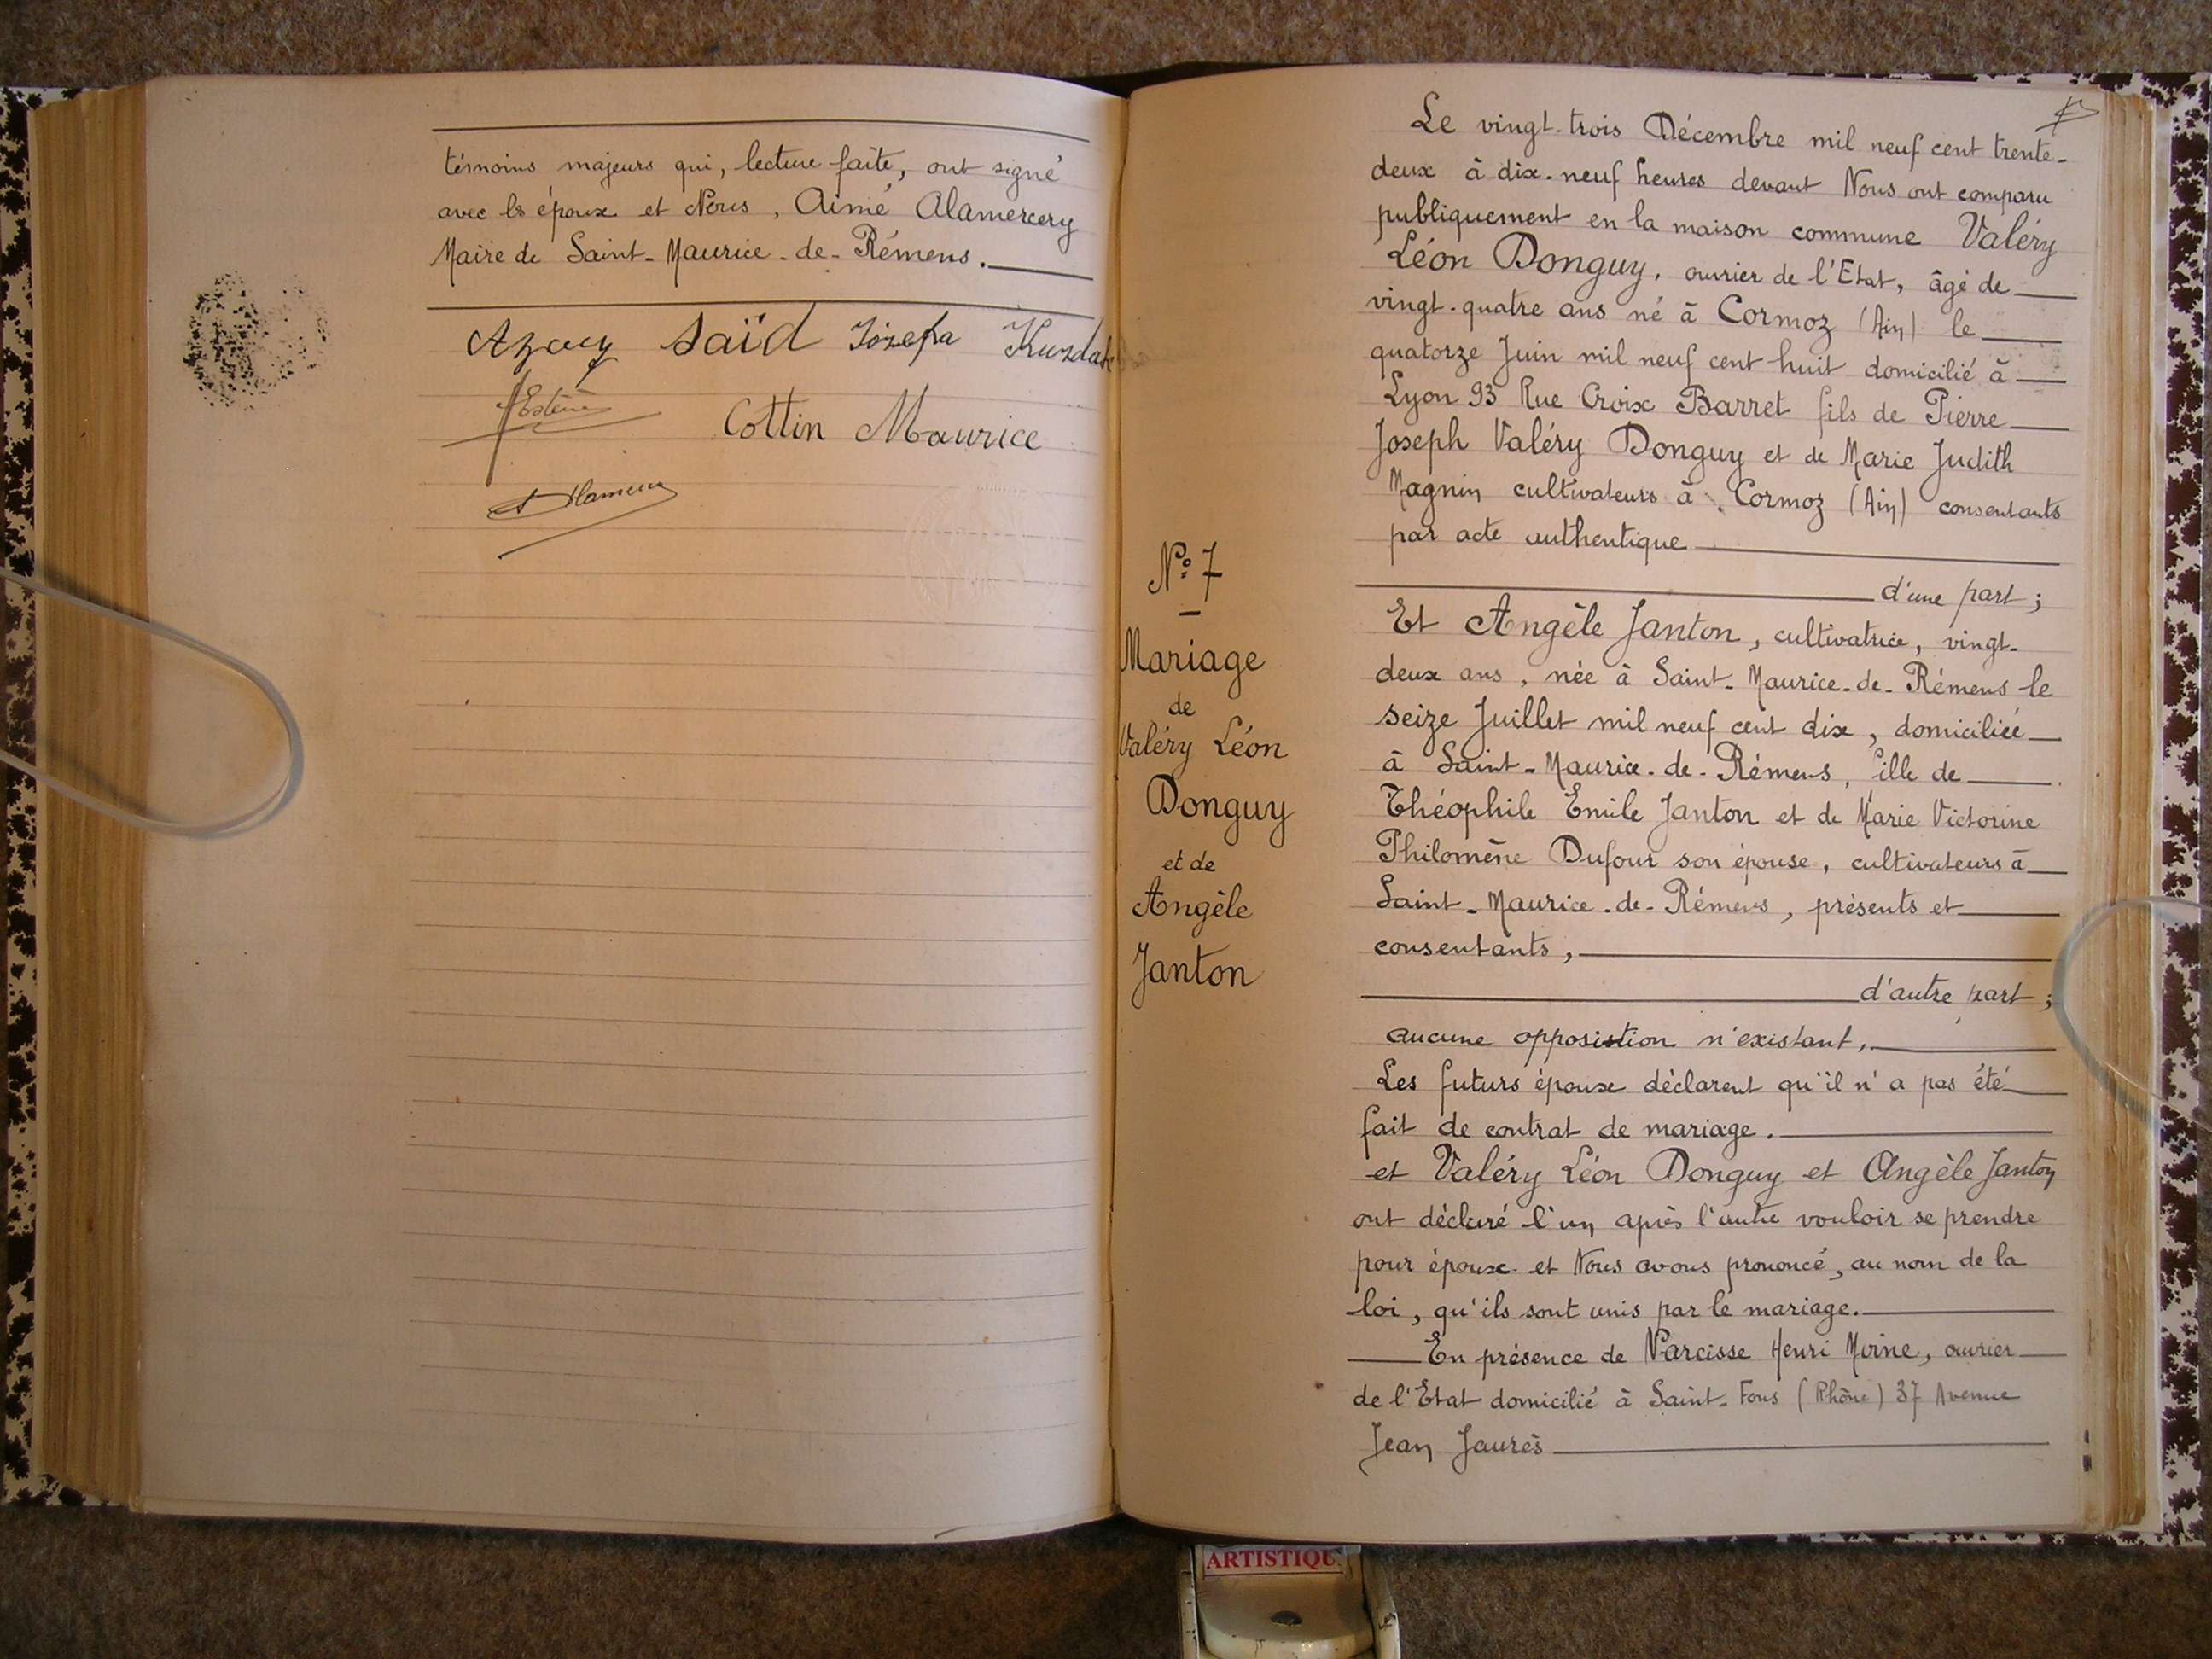 témoins majeurs qui, lecture faite, ont signé
avec les époux et Nous, Aimé Alamercery
Maire de Saint-Maurice-de-Rémens.
Azouy Saïd Józefa Kuzdak
Cottin Maurice
Le vingt-trois Décembre mil neuf cent trente-
deux à dix-neuf heures devant Nous ont comparu
publiquement en la maison commune Valéry
Léon Donguy, ouvrier de l'Etat, âgé de
vingt-quatre ans né à Cormoz (Ain) le
quatorze Juin mil neuf cent huit domicilié à
Lyon 93 Rue Croix Barret fils de Pierre
Joseph Valéry Donguy et de Marie Judith
Magnin cultivateurs à Cormoz (Ain) consentants
par acte authentique
d'une part;
Et Angèle Janton, cultivatrice, vingt-
deux ans, née à Saint-Maurice-de-Rémens le
seize Juillet mil neuf cent dix, domiciliée
à Saint-Maurice-de-Rémens, fille de
Théophile Emile Janton et de Marie Victorine
Philomène Dufour son épouse, cultivateurs à
Saint-Maurice-de-Rémens, présents et
consentants,
d'autre part;
aucune opposition n'existant,
Les futurs époux déclarent qu'il n'a pas été
fait de contrat de mariage.
et Valéry Léon Donguy et Angèle Janton
ont déclaré l'un après l'autre vouloir se prendre
pour époux et Nous avons prononcé, au nom de la
loi, qu'ils sont unis par le mariage.
En présence de Narcisse Henri Moine, ouvrier
de l'Etat domicilié à Saint-Fons (Rhône) 37 Avenue
Jean Jaurès
N° 7
Mariage
de
Valéry Léon
Donguy
et de
Angèle
Janton
ARTISTIQU